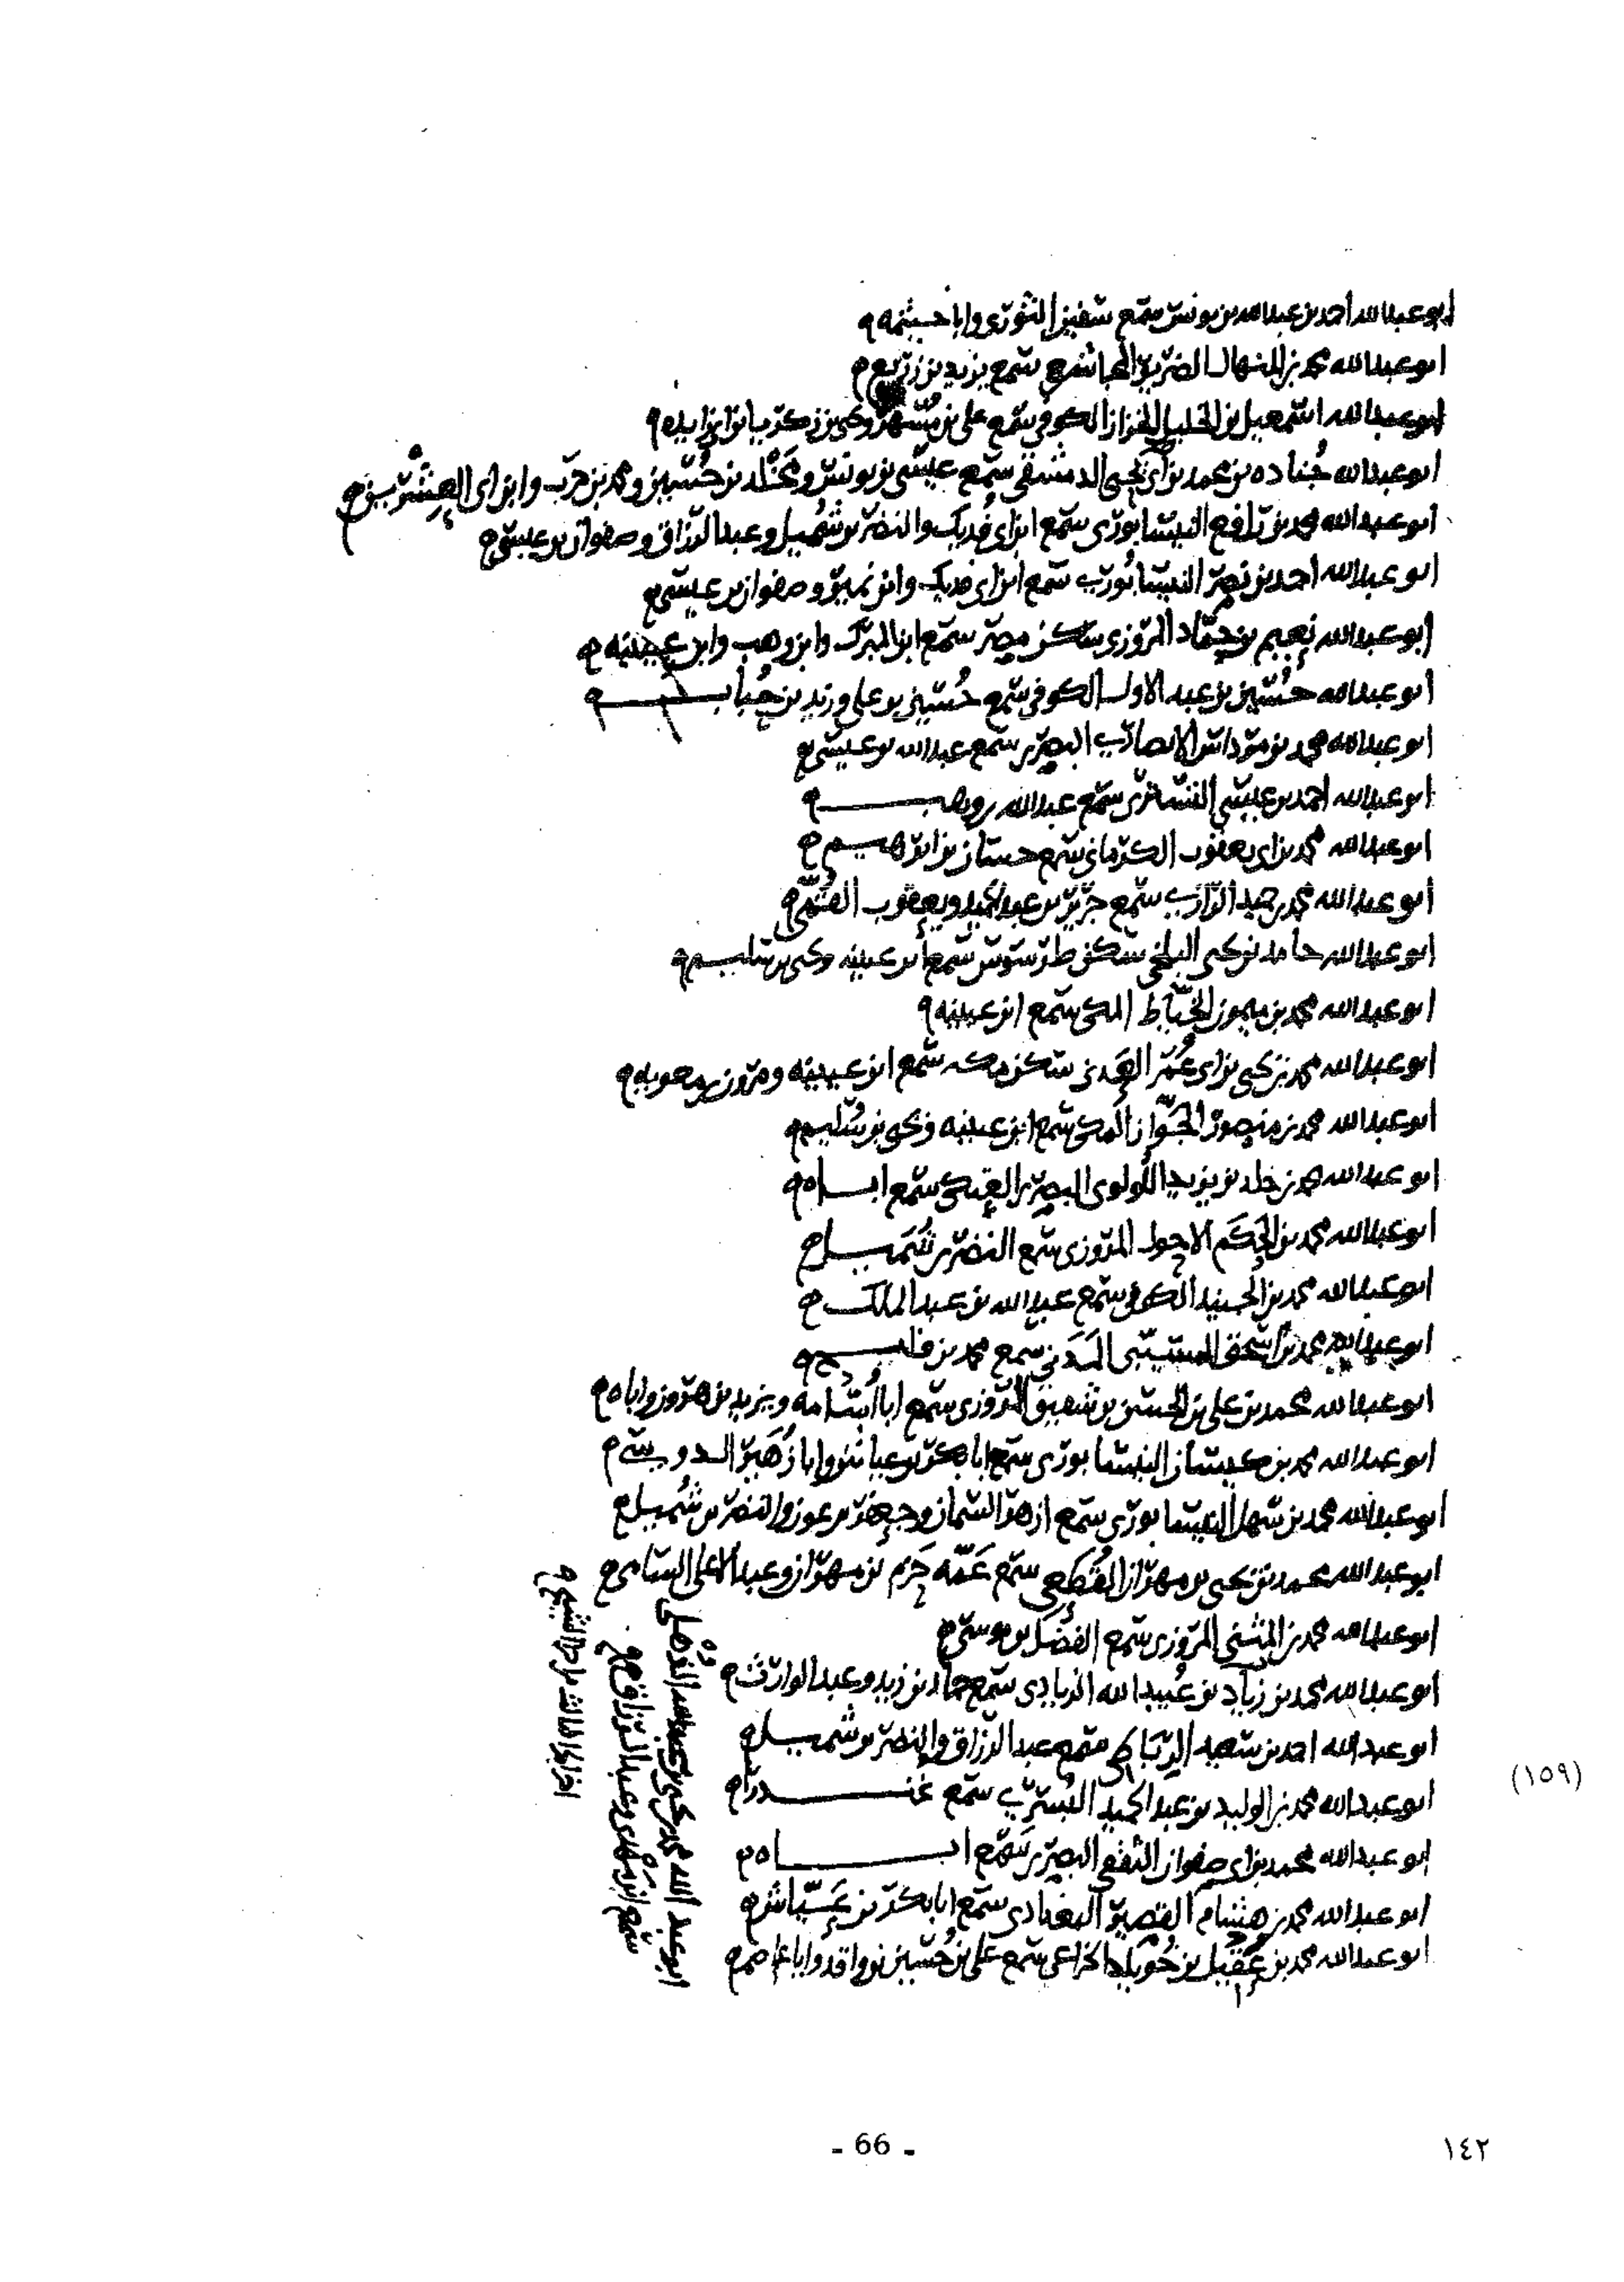 ابو عبد الله احمد بن عبد الله بن يونس سمع سفين الثوري وابا خيثمه
ابو عبد الله محمد بن المنهال الضرير المجاشعي سمع يزيد بن زريع
ابو عبد الله اسمعيل بن الخليل الخزاز الكوفي سمع على بن مسهر ويحيى بن زكريا بن ابي زايده
ابو عبد الله جناده بن محمد بن ابي يحيى الدمشقي سمع عيسى بن يونس ومخلد بن حسين ومحمد بن حرب وابن ابي العشرين
ابو عبد الله محمد بن رافع النيسابوري سمع ابن ابي فديك والنضر بن شميل وعبد الرزاق وصفوان بن عيسى
ابو عبد الله احمد بن نصر النيسابوري سمع ابن ابي فديك وابن نمير وصفوان بن عيسى
ابو عبد الله نعيم بن حماد المروزي سكن مصر سمع ابن المبرك وابن وهب وابن عيينه
ابو عبد الله حسين بن عبد الاول الكوفي سمع حسين بن على وزيد بن حباب
ابو عبد الله محمد بن مرداس الانصاري البصري سمع عبد الله بن عيسى
ابو عبد الله احمد بن عيسى التستري سمع عبد الله بن وهب
ابو عبد الله محمد بن ابي يعقوب الكرماني سمع حسان بن ابرهيم
ابو عبد الله محمد بن حميد الرازي سمع جرير بن عبد الحميد ويعقوب القمي
ابو عبد الله حامد بن يحيى البلخي سكن طرسوس سمع ابن عيينه ويحيى بن سليم
ابو عبد الله محمد بن ميمون الخياط المكي سمع ابن عيينه
ابو عبد الله محمد بن يحيى بن ابي عمر العدني سكن مكه سمع ابن عيينه ومرون بن معويه
ابو عبد الله محمد بن منصور الجواز المكي سمع ابن عيينه ويحيى بن سليم
ابو عبد الله محمد بن خلد بن يزيد اللولوي البصري العتكي سمع اباه
ابو عبد الله محمد بن الحكم الاحول المروزي سمع النضر بن شميل
ابو عبد الله محمد بن الجنيد الكوفي سمع عبد الله بن عبد الملك
ابو عبد الله محمد بن اسحق المسيبي المدني سمع محمد بن فليح
ابو عبد الله محمد بن على بن الحسن بن شقيق المروزي سمع ابا اسامه ويزيد بن هرون واباه
ابو عبد الله محمد بن كيسان النيسابوري سمع ابا بكر بن عياش وابا زهير الدوسي
ابو عبد الله محمد بن سهل النيسابوري سمع ازهر السمان وجعفر بن عون والنضر بن شميل
ابو عبد الله محمد بن يحيى بن مهران القطعي سمع عمه حزم بن مهران وعبد الاعلى السامي
ابو عبد الله محمد بن المثنى المروزي سمع الفضل بن موسى
ابو عبد الله محمد بن زياد بن عبيد الله الزيادي سمع حماد بن زيد وعبد الوارث
ابو عبد الله احمد بن سعيد الرباطي سمع عبد الرزاق والنضر بن شميل
ابو عبد الله محمد بن الوليد بن عبد الحميد البسري سمع غندرا
ابو عبد الله محمد بن ابي صفوان الثقفي البصري سمع اباه
ابو عبد الله محمد بن هشام القصير البغدادي سمع ابا بكر بن عياش
ابو عبد الله محمد بن عقيل بن خويلد الخزاعي سمع على بن حسين بن واقد وابا عاصم
ابو عبد الله محمد بن يحيى بن عبد الله الذهلي
سمع ابن مهدي وعبد الرزاق
(١٥٩)
- 66 -
١٤٢